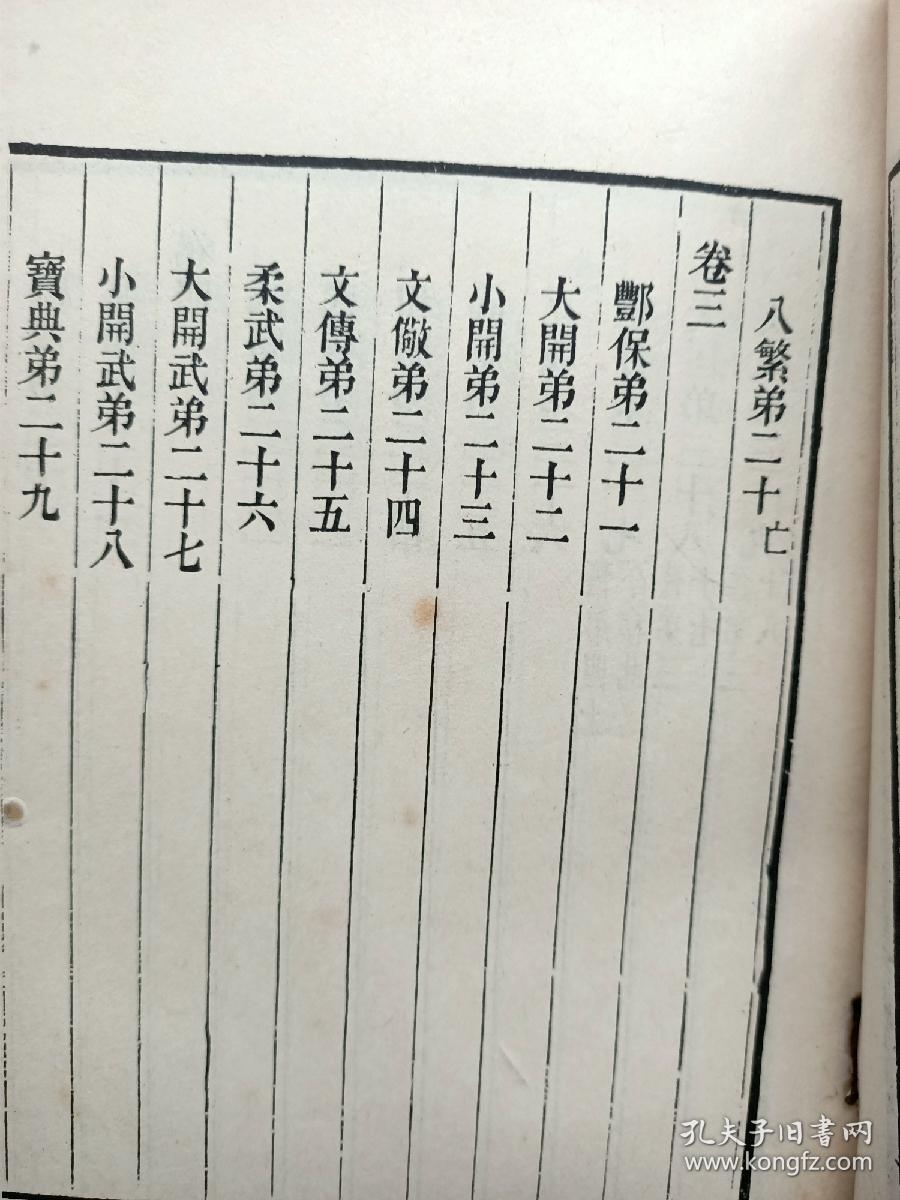 八繁弟二十亡
卷三
酆保弟二十一
大開弟二十二
小開弟二十三
文儆弟二十四
文傳弟二十五
柔武弟二十六
大開武弟二十七
小開武弟二十八
寶典弟二十九
孔夫子旧书网
www.kongfz.com